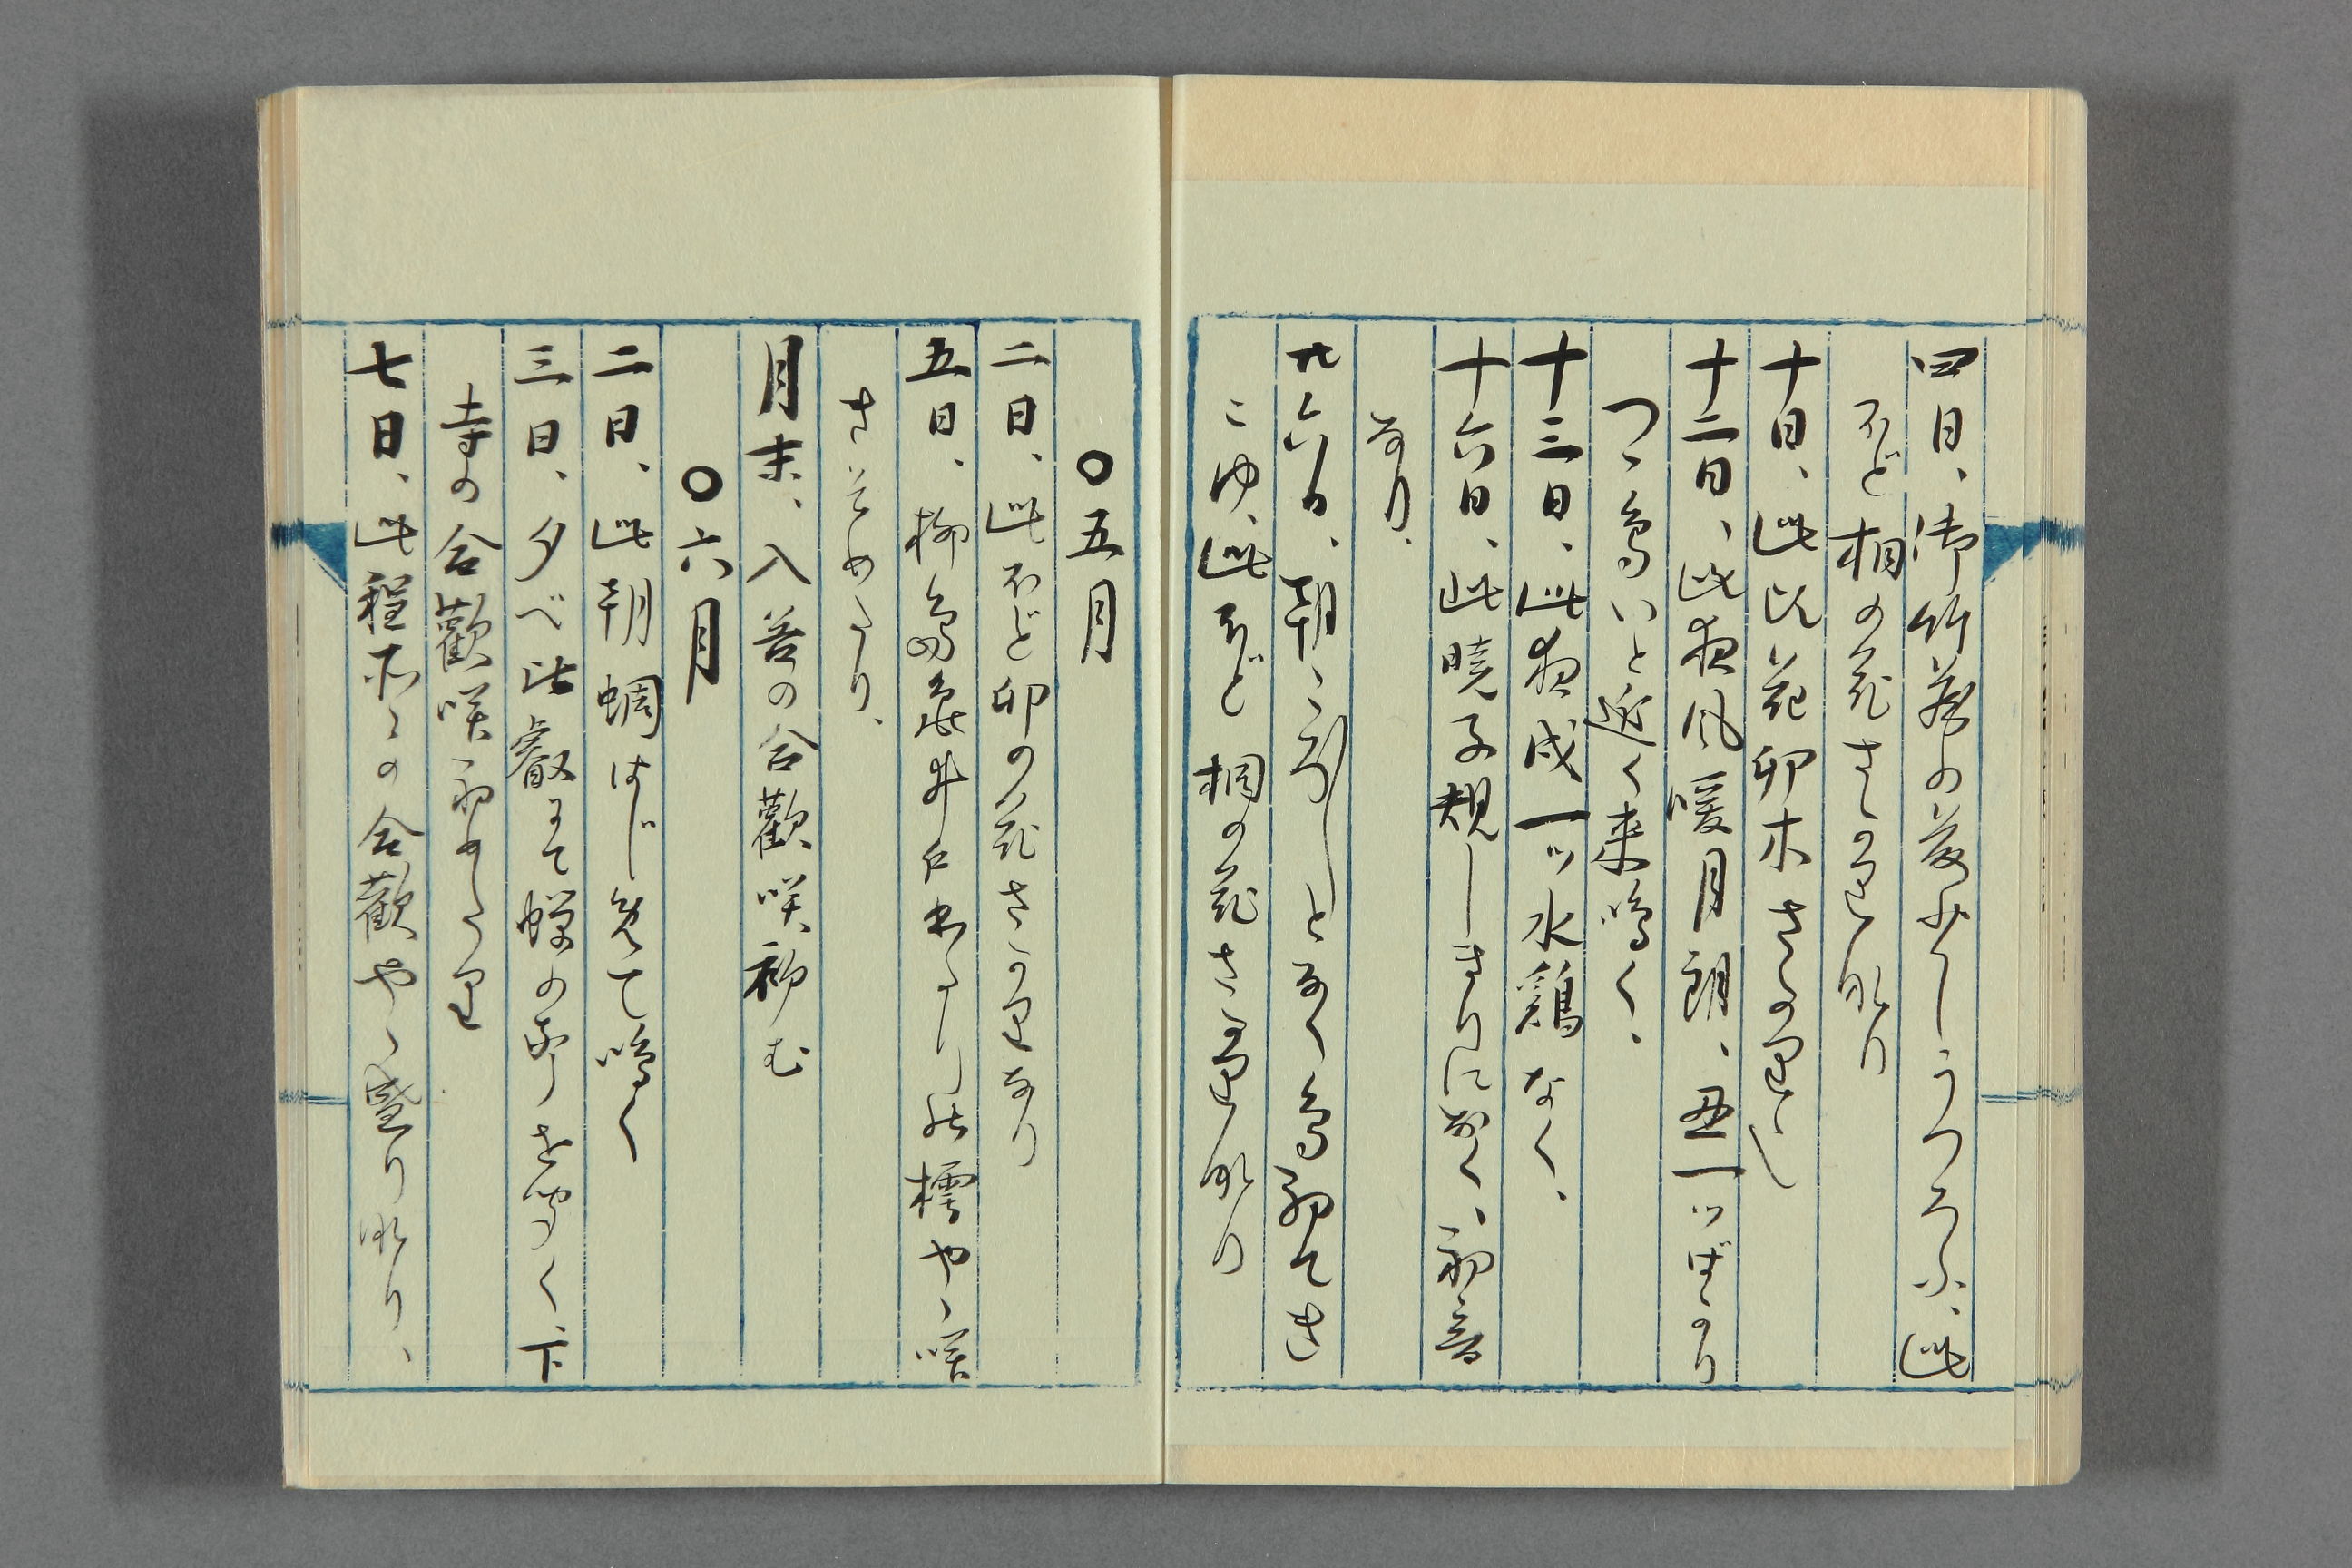 四日、御竹藪の藪少しうつろふ、此
ほど桐の花さかりなり
十日、此比花卯木さかりなり
十二日、此夜風暖月朗、丑一ツばかり
つゝ鳥いと近く来鳴く、
十三日、此夜戌一ツ水鶏なく、
十六日、此暁子規しきりになく、初音
なり、
廿六日、朝ころころとなく鳥初てき
こゆ、此ほど桐の花さかりなり
〇五月
二日、此ほど卯の花さかりなり
五日、柳島亀井戸 樗やゝ咲
さそめたり、
月末、入谷の合歡咲初む
〇六月
二日、此朝蜩はじめて鳴く
三日、夕べ比叡にて蝉の聲を聞く、下
寺の合歡咲初めたり
七日、此程所々の合歡やゝ盛りなり、